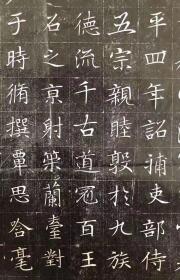 平四年詔補吏部侍
五宗親睦殷於九族
德流千古道冠百王
石之京射策蘭臺對
于時脩撰覃思含毫